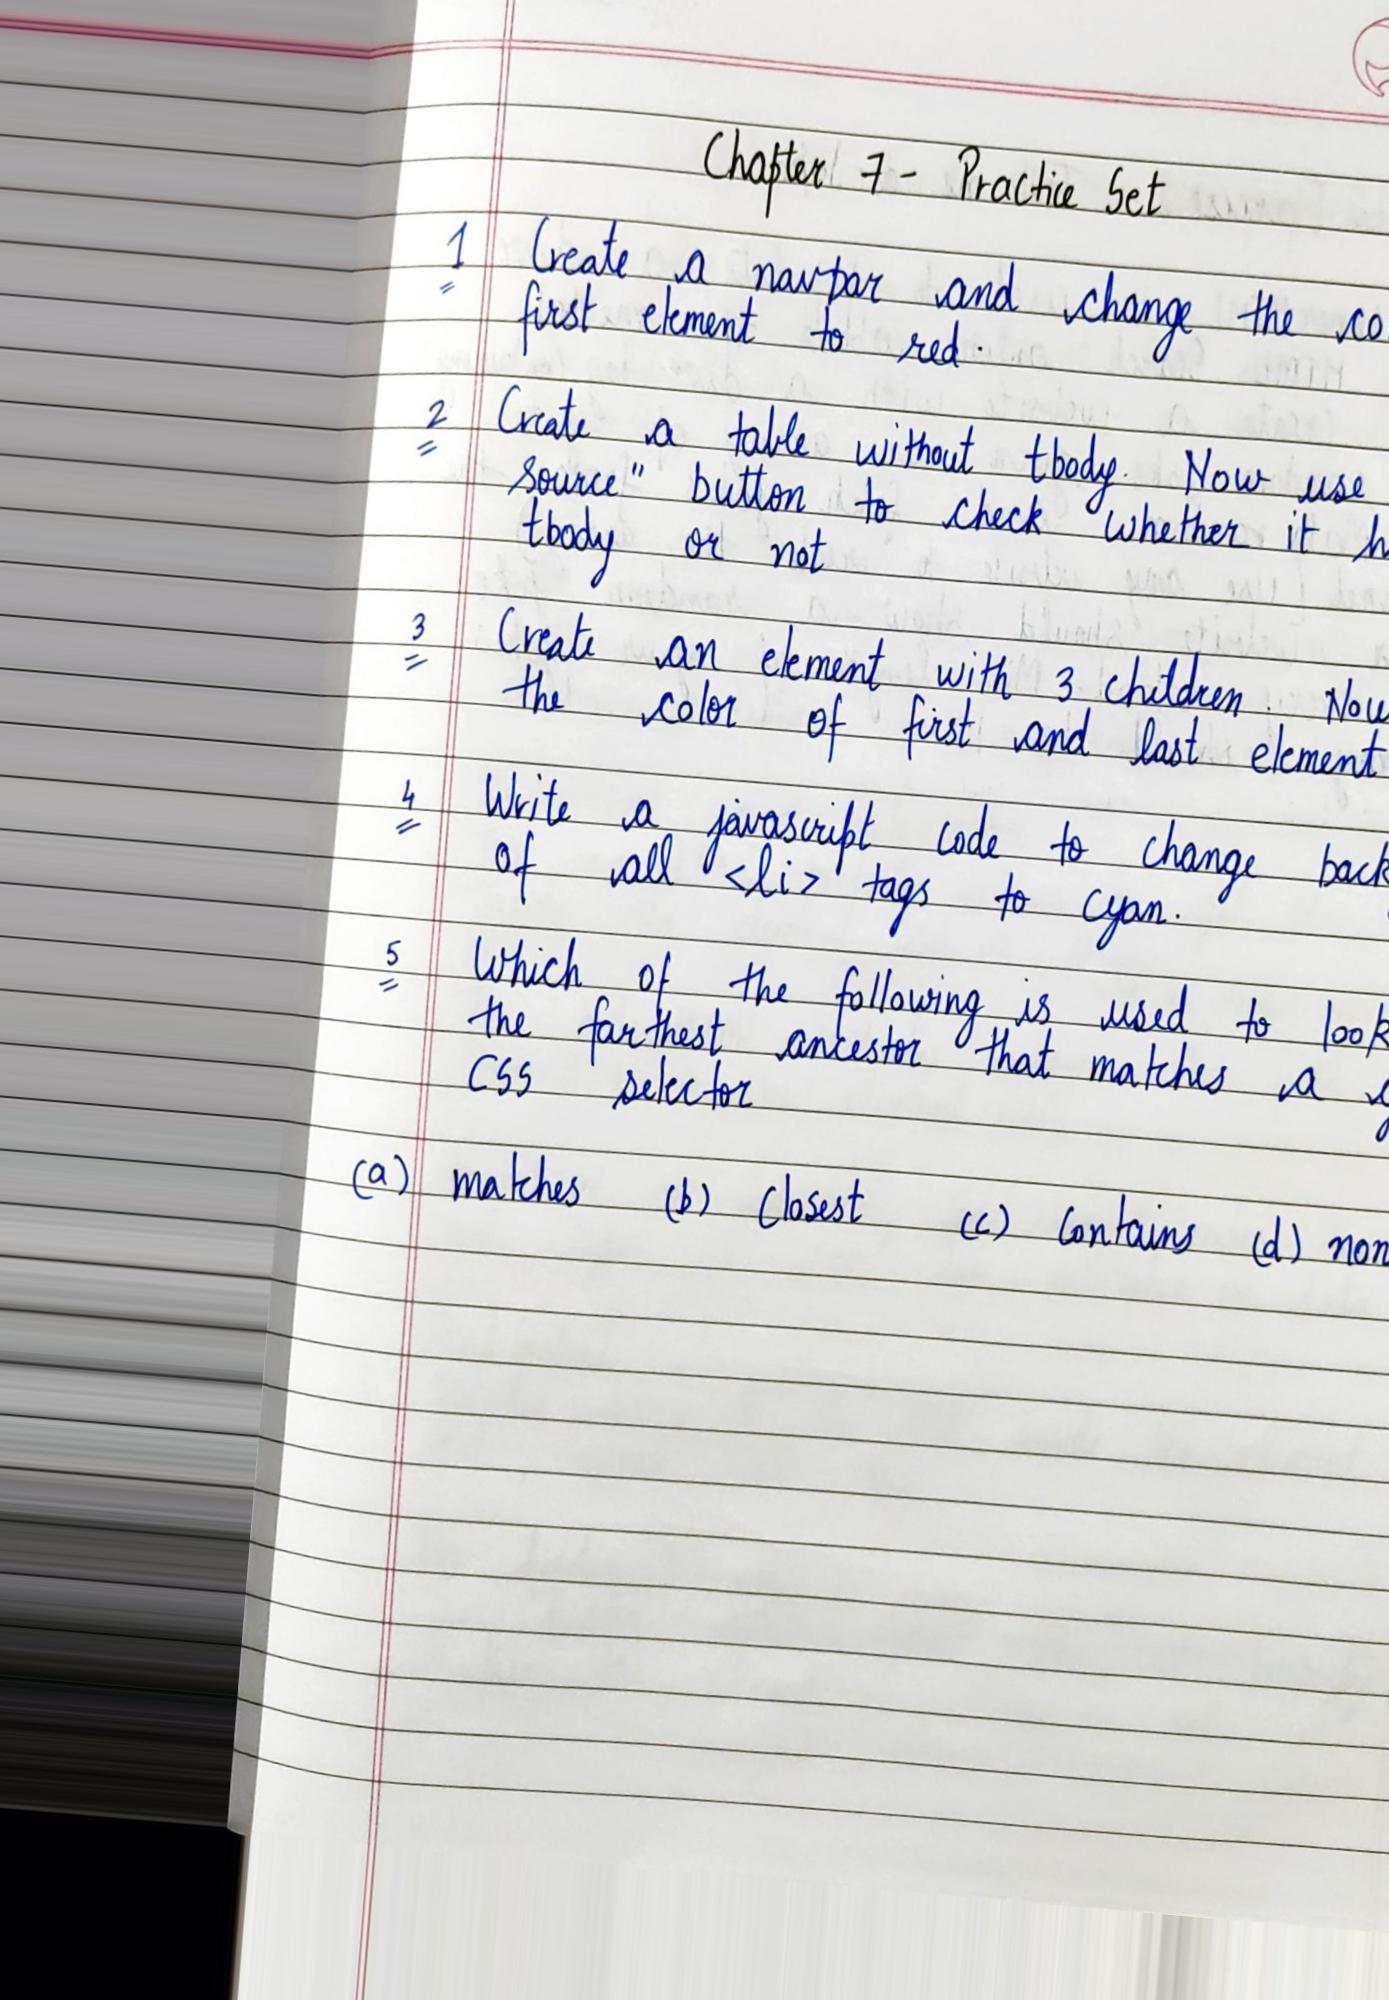 Chapter 7 - Practice Set
1 Create a navbar and change the co
first element to red.
2 Create a table without tbody. Now use
source" button to check whether it h
tbody or not
3 Create an element with 3 children. Now
the color of first and last element
4 Write a javascript code to change back
of all <li> tags to cyan.
5 Which of the following is used to look
the farthest ancestor that matches a g
CSS selector
(a) matches (b) Closest (c) Contains (d) non